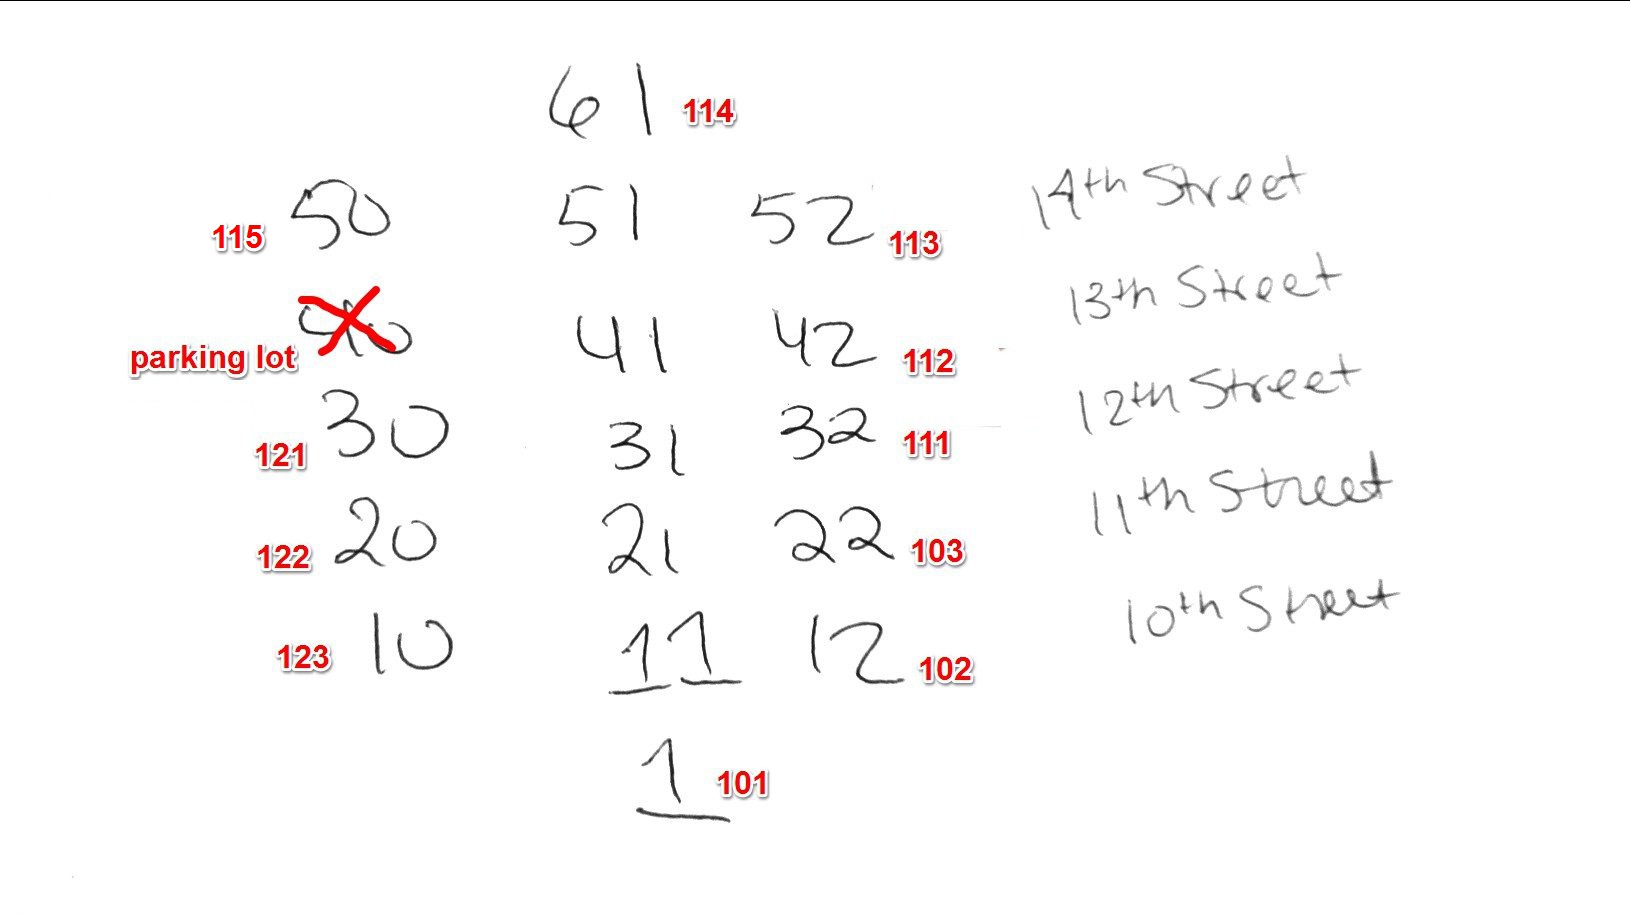 61 114
115 50 51 52 113 14th Street
parking lot 40 41 42 112 13th Street
121 30 31 32 111 12th Street
122 20 21 22 103 11th Street
123 10 11 12 102 10th Street
1 101